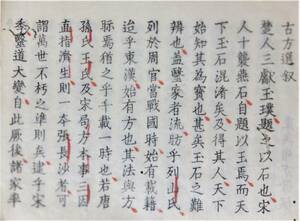 古方選叙
楚人三獻玉璞題之以石也宋
人十襲燕石自題以玉焉而天
下玉石混淆矣及得其人天下
始知其為寶也甚矣玉石之難
辨也蓋毉家者流昉乎列山氏
列於周官當戰國時始有載籍
迨乎東漢始有方也其法與方
賅焉猶之乎千載一時也若唐
孫氏王氏及宋局方本事三因
直指濟生則一本張長沙者可
謂萬世不朽之準則矣逮乎宋
季繫道大變自此厥後諸家率